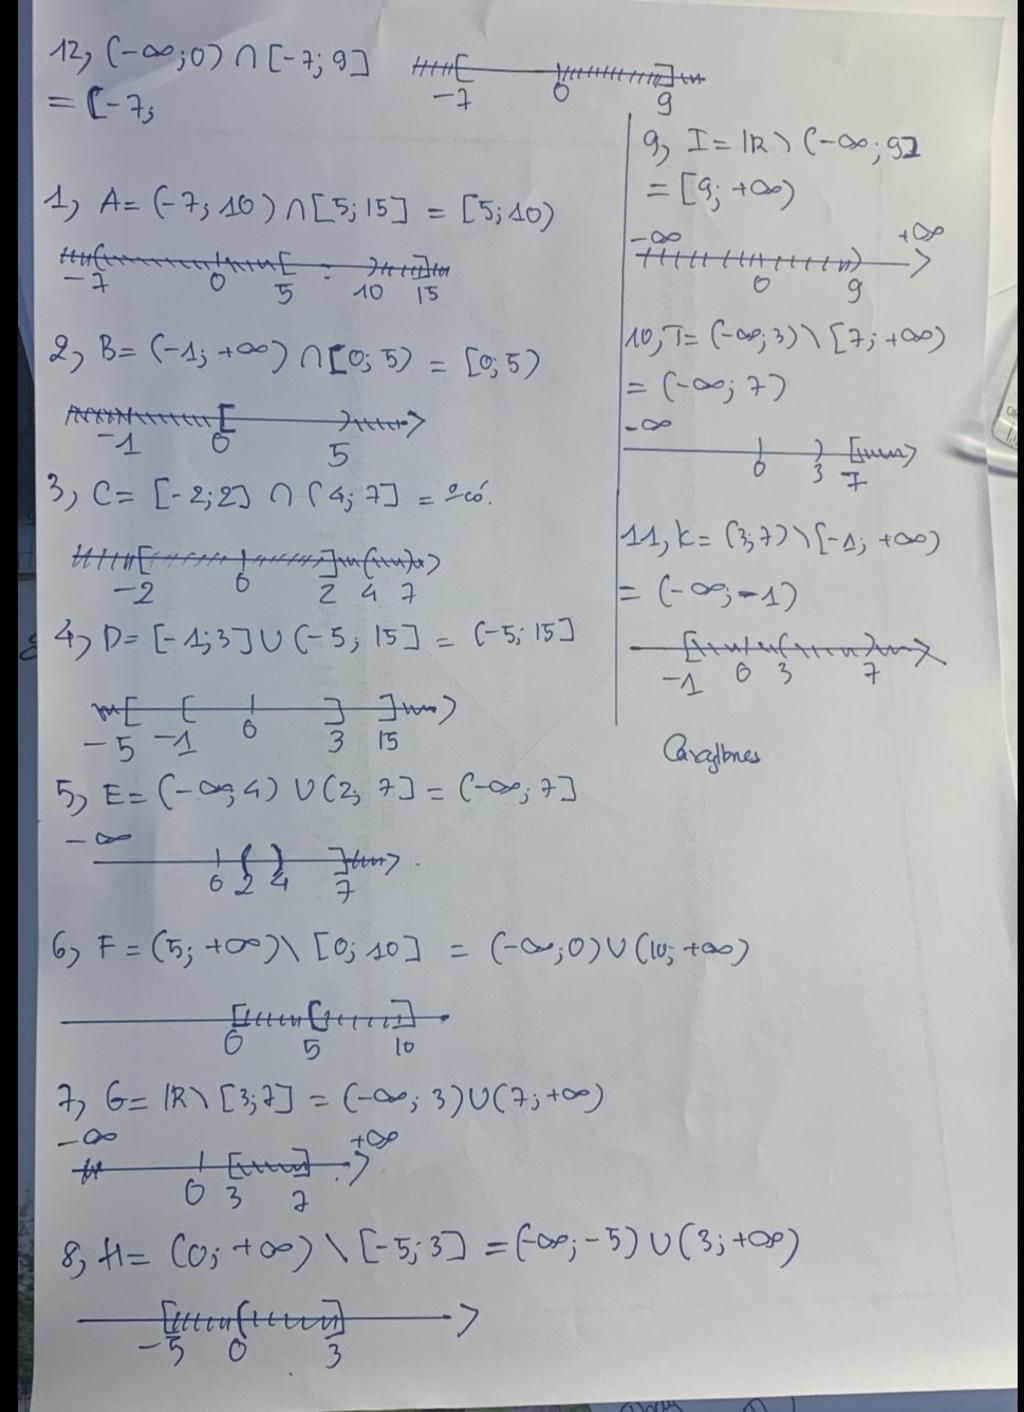 12, (-∞;0) ∩ [-7; 9]
= [-7;
-7 0 9
1, A= (-7; 10) ∩ [5; 15] = [5; 10)
-7 0 5 10 15
2, B= (-1; +∞) ∩ [0; 5) = [0; 5)
-1 0 5
3, C= [-2;2] ∩ (4; 7] = có.
-2 0 2 4 7
4, D= [-1;3] ∪ (-5; 15] = (-5; 15]
-5 -1 0 3 15
5, E= (-∞; 4) ∪ (2; 7] = (-∞; 7]
-∞
0 2 4 7
6, F = (5; +∞) \ [0; 10] = (-∞;0) ∪ (10; +∞)
0 5 10
7, G= IR \ [3;7] = (-∞; 3) ∪ (7; +∞)
-∞ +∞
0 3 7
8, H= (0; +∞) \ [-5; 3] = (-∞; -5) ∪ (3; +∞)
-5 0 3
9, I= IR \ (-∞; 9]
= [9; +∞)
-∞ +∞
0 9
10, T= (-∞; 3) \ [7; +∞)
= (-∞; 7)
-∞
0 3 7
11, K= (3;7) \ [-1; +∞)
= (-∞; -1)
-1 0 3 7